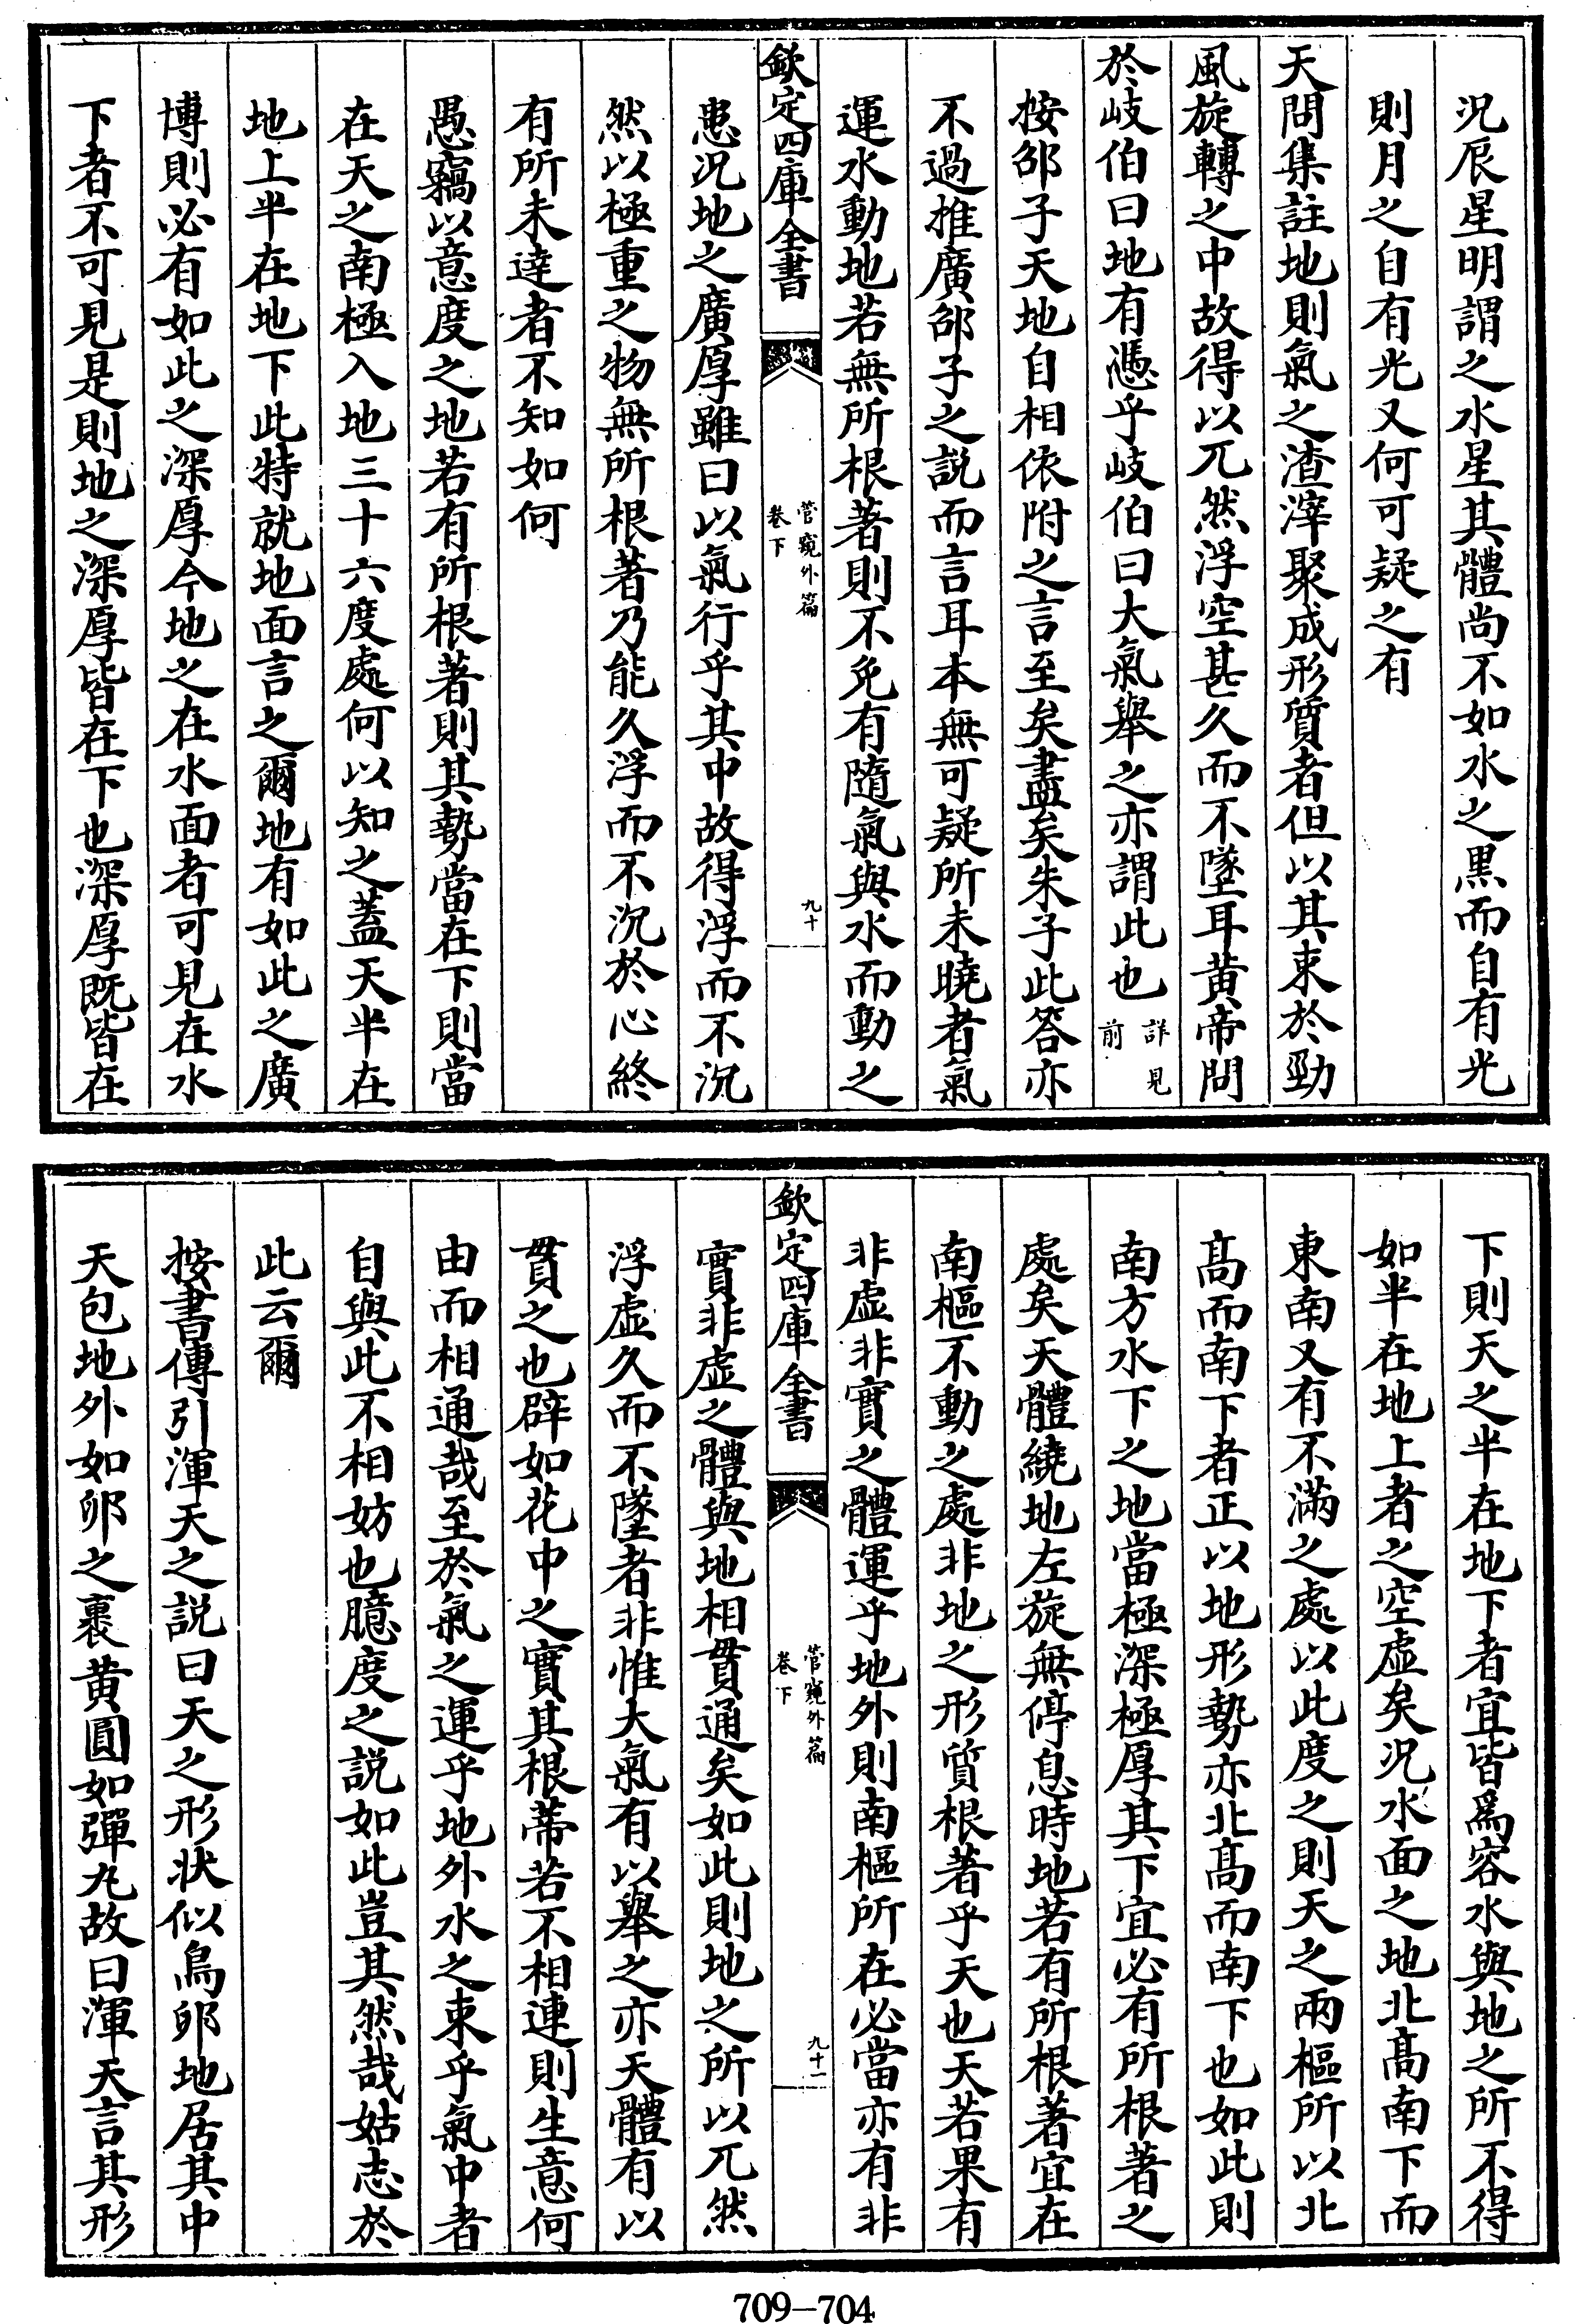 況辰星明謂之水星其體尚不如水之黒而自有光
則月之自有光又何可疑之有
天問集註地則氣之渣滓聚成形質者但以其束於勁
風旋轉之中故得以兀然浮空甚久而不墜耳黄帝問
於岐伯曰地有憑乎岐伯曰大氣舉之亦謂此也詳見前
按邵子天地自相依附之言至矣盡矣朱子此答亦
不過推廣邵子之説而言耳本無可疑所未曉者氣
運水動地若無所根著則不免有隨氣與水而動之
欽定四庫全書
管窺外篇
卷下
九十
患況地之廣厚雖曰以氣行乎其中故得浮而不沉
然以極重之物無所根著乃能久浮而不沉於心終
有所未逹者不知如何
愚竊以意度之地若有所根著則其勢當在下則當
在天之南極入地三十六度處何以知之蓋天半在
地上半在地下此特就地面言之爾地有如此之廣
博則必有如此之深厚今地之在水面者可見在水
下者不可見是則地之深厚皆在下也深厚既皆在
下則天之半在地下者宜皆爲容水與地之所不得
如半在地上者之空虚矣況水面之地北髙南下而
東南又有不滿之處以此度之則天之兩樞所以北
髙而南下者正以地形勢亦北髙而南下也如此則
南方水下之地當極深極厚其下宜必有所根著之
處矣天體繞地左旋無停息時地若有所根著宜在
南樞不動之處非地之形質根著乎天也天若果有
非虚非實之體運乎地外則南樞所在必當亦有非
欽定四庫全書
管窺外篇
卷下
九十一
實非虚之體與地相貫通矣如此則地之所以兀然
浮虚久而不墜者非惟大氣有以舉之亦天體有以
貫之也辟如花中之實其根蒂若不相連則生意何
由而相通哉至於氣之運乎地外水之束乎氣中者
自與此不相妨也臆度之説如此豈其然哉姑志於
此云爾
按書傳引渾天之説曰天之形狀似鳥卵地居其中
天包地外如卵之裹黄圓如彈丸故曰渾天言其形
709—704